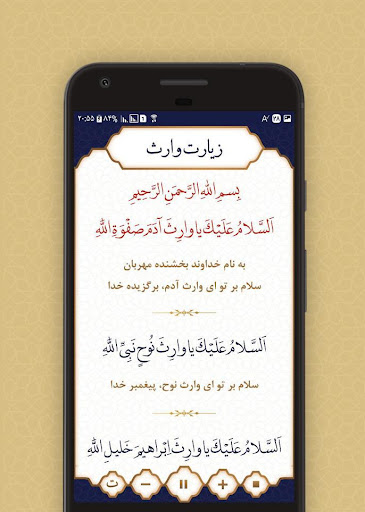 ۲۰:۵۵ ۸۴%
زیارت وارث
بِسمِ اللهِ الرَّحمَنِ الرَّحِیمِ
اَلسَّلامُ عَلَیْكَ یا وارِثَ آدَمَ صَفْوَةِ اللهِ
به نام خداوند بخشنده مهربان
سلام بر تو ای وارث آدم، برگزیده خدا
اَلسَّلامُ عَلَیْكَ یا وارِثَ نُوحٍ نَبِیِّ اللهِ
سلام بر تو ای وارث نوح، پیغمبر خدا
اَلسَّلامُ عَلَیْكَ یا وارِثَ اِبْراهیمَ خَلیلِ اللهِ
ت